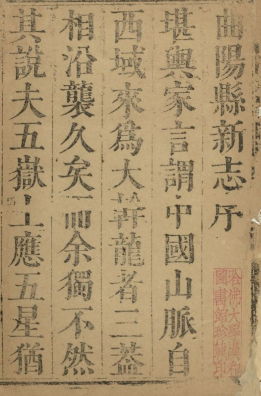 曲陽縣新志序
堪輿家言謂中國山脈自
西域來為大幹龍者三蓋
相沿襲久矣而余獨不然
其說夫五嶽上應五星猶